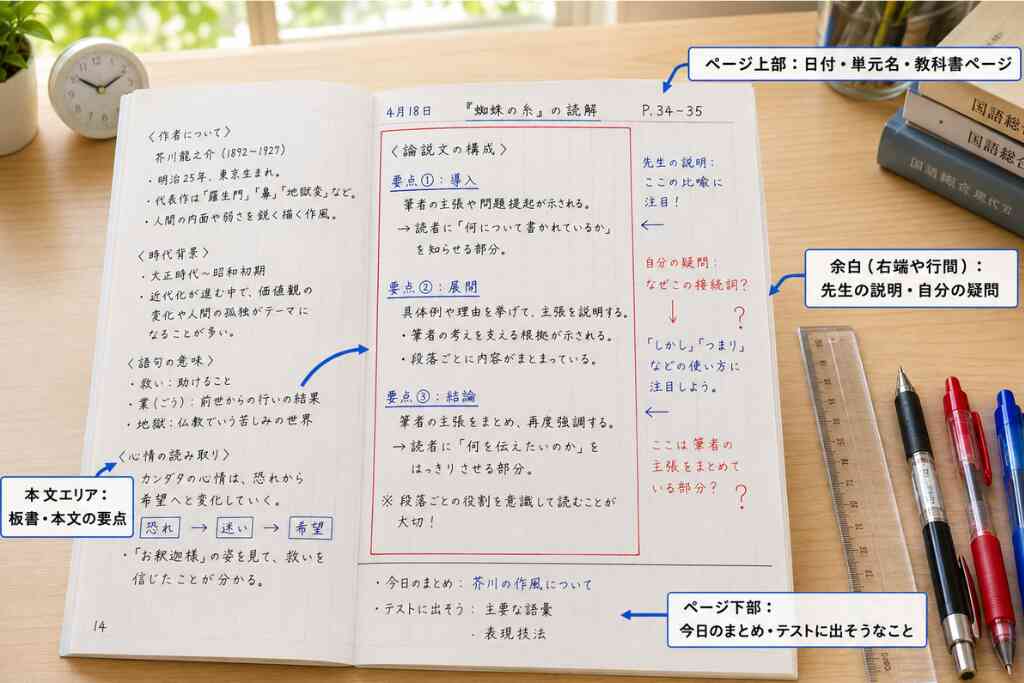 〈作者について〉
芥川龍之介（1892～1927）
・明治25年、東京生まれ。
・代表作は「羅生門」「鼻」「地獄変」など。
・人間の内面や弱さを鋭く描く作風。
〈時代背景〉
・大正時代～昭和初期
・近代化が進む中で、価値観の
変化や人間の孤独がテーマに
なることが多い。
〈語句の意味〉
・救い：助けること
・業（ごう）：前世からの行いの結果
・地獄：仏教でいう苦しみの世界
〈心情の読み取り〉
カンダタの心情は、恐れから
希望へと変化していく。
恐れ → 迷い → 希望
・「お釈迦様」の姿を見て、救いを
信じたことが分かる。
14
4月18日 『蜘蛛の糸』の読解 P.34-35
〈論説文の構成〉
要点①：導入
筆者の主張や問題提起が示される。
→読者に「何について書かれているか」
を知らせる部分。
要点②：展開
具体例や理由を挙げて、主張を説明する。
・筆者の考えを支える根拠が示される。
・段落ごとに内容がまとまっている。
要点③：結論
筆者の主張をまとめ、再度強調する。
→読者に「何を伝えたいのか」を
はっきりさせる部分。
※段落ごとの役割を意識して読むことが
大切！
先生の説明：
ここの比喩に
注目！
←
自分の疑問：
なぜこの接続詞？
↓
?
「しかし」「つまり」
などの使い方に
注目しよう。
←
ここは筆者の
主張をまとめて
いる部分？
?
・今日のまとめ：芥川の作風について
・テストに出そう：主要な語彙
・表現技法
ページ上部：日付・単元名・教科書ページ
余白（右端や行間）：
先生の説明・自分の疑問
本文エリア：
板書・本文の要点
ページ下部：
今日のまとめ・テストに出そうなこと
国語総
国語総合
国語総合現代文